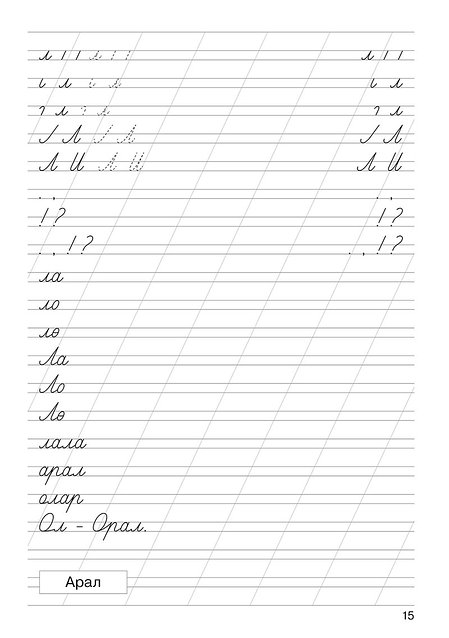 л л л
л л л
л л л
Л Л Л
Л И Л И Л И
. , . ,
! ? ! ?
. , ! ? . , ! ?
ла
ло
лө
Ла
Ло
Лө
лала
арал
олар
Ол – Орал.
Арал
15